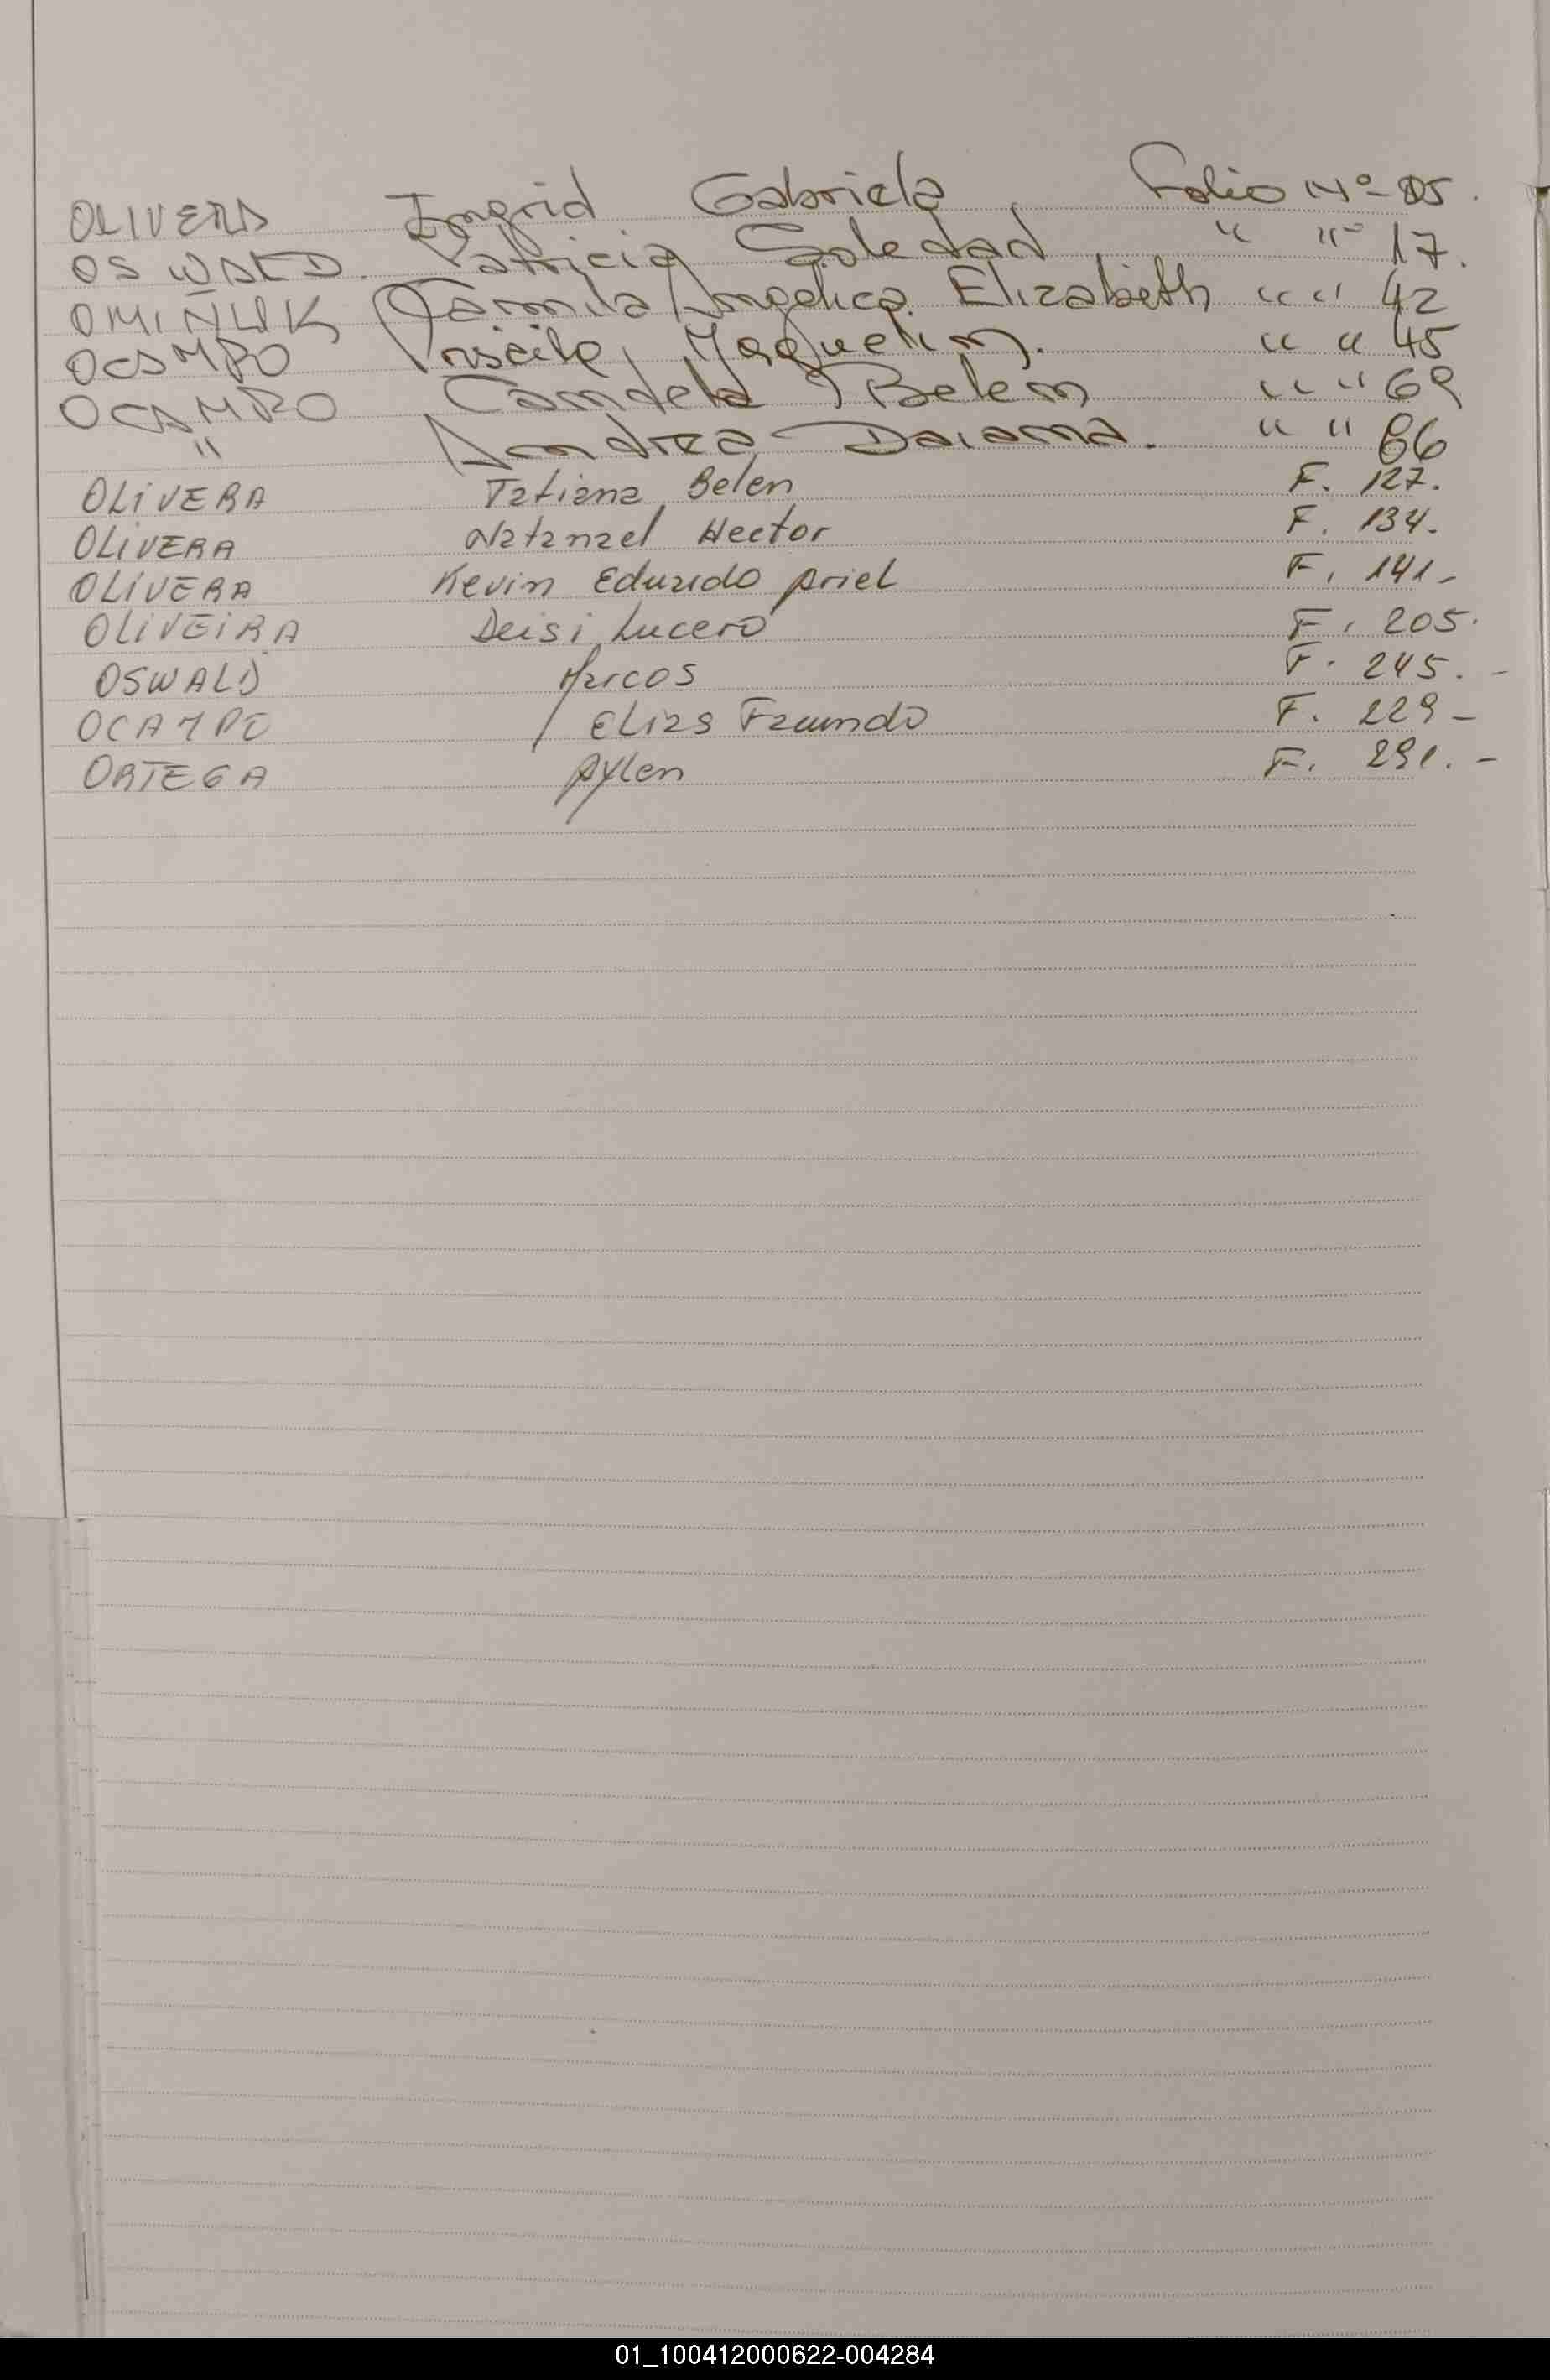 OLIVERA Ingrid Gabriela Folio Nº- 05.
OSWALD. Patricia Soledad " " 17.
OMIÑUK Camila Angelica Elizabeth " " 42
OCAMPO Priscila Maquelin. " " 45
OCAMPO Candela Belem " " 69
" Andrea Daiana. " " 86
OLIVERA Tatiana Belen F. 127.
OLIVERA Natanael Hector F. 134.
OLIVERA Kevin Eduardo Ariel F. 141-
OLIVEIRA Deisi Lucero F. 205.
OSWALD Marcos F. 245. -
OCAMPO Elias Facundo F. 229 -
ORTEGA Aylen F. 291. -
01_100412000622-004284